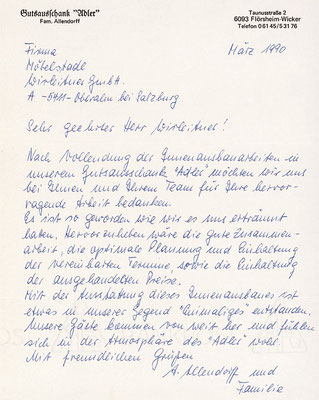 Gutsausschank "Adler"
Fam. Allendorff
Taunusstraße 2
6093 Flörsheim-Wicker
Telefon 0 61 45/5 31 76
März 1990
Firma
Möbelstadl
Wirleitner GmbH.
A -5411- Oberalm bei Salzburg
Sehr geehrter Herr Wirleitner!
Nach Vollendung der Innenausbauarbeiten in
unserem Gutsausschanke "Adler" möchten wir uns
bei Ihnen und Ihrem Team für Ihre hervor-
ragende Arbeit bedanken.
Es ist so geworden wie wir es uns erträumt
haben. Hervorzuheben wäre die gute Zusammen-
arbeit, die optimale Planung und Einhaltung
der vereinbarten Termine sowie die Einhaltung
der ausgehandelten Preise.
Mit der Ausstattung dieses Innenausbaues ist
etwas in unserer Gegend "Einmaliges" entstanden.
Unsere Gäste kommen von weit her und fühlen
sich in der Atmosphäre des "Adler" wohl.
Mit freundlichen Grüßen
A. Allendorff und
Familie